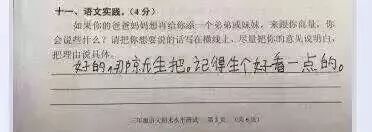 十一、语文实践。(4分)
如果你的爸爸妈妈想再给你添一个弟弟或妹妹，来跟你商量，你
会说些什么？请把你想要说的话写在横线上，尽量把你的意见说明白，
把理由说具体。
好的，那你先生把。记得生个好看一点的。
三年级语文期末水平测试 第5页 (共6页)